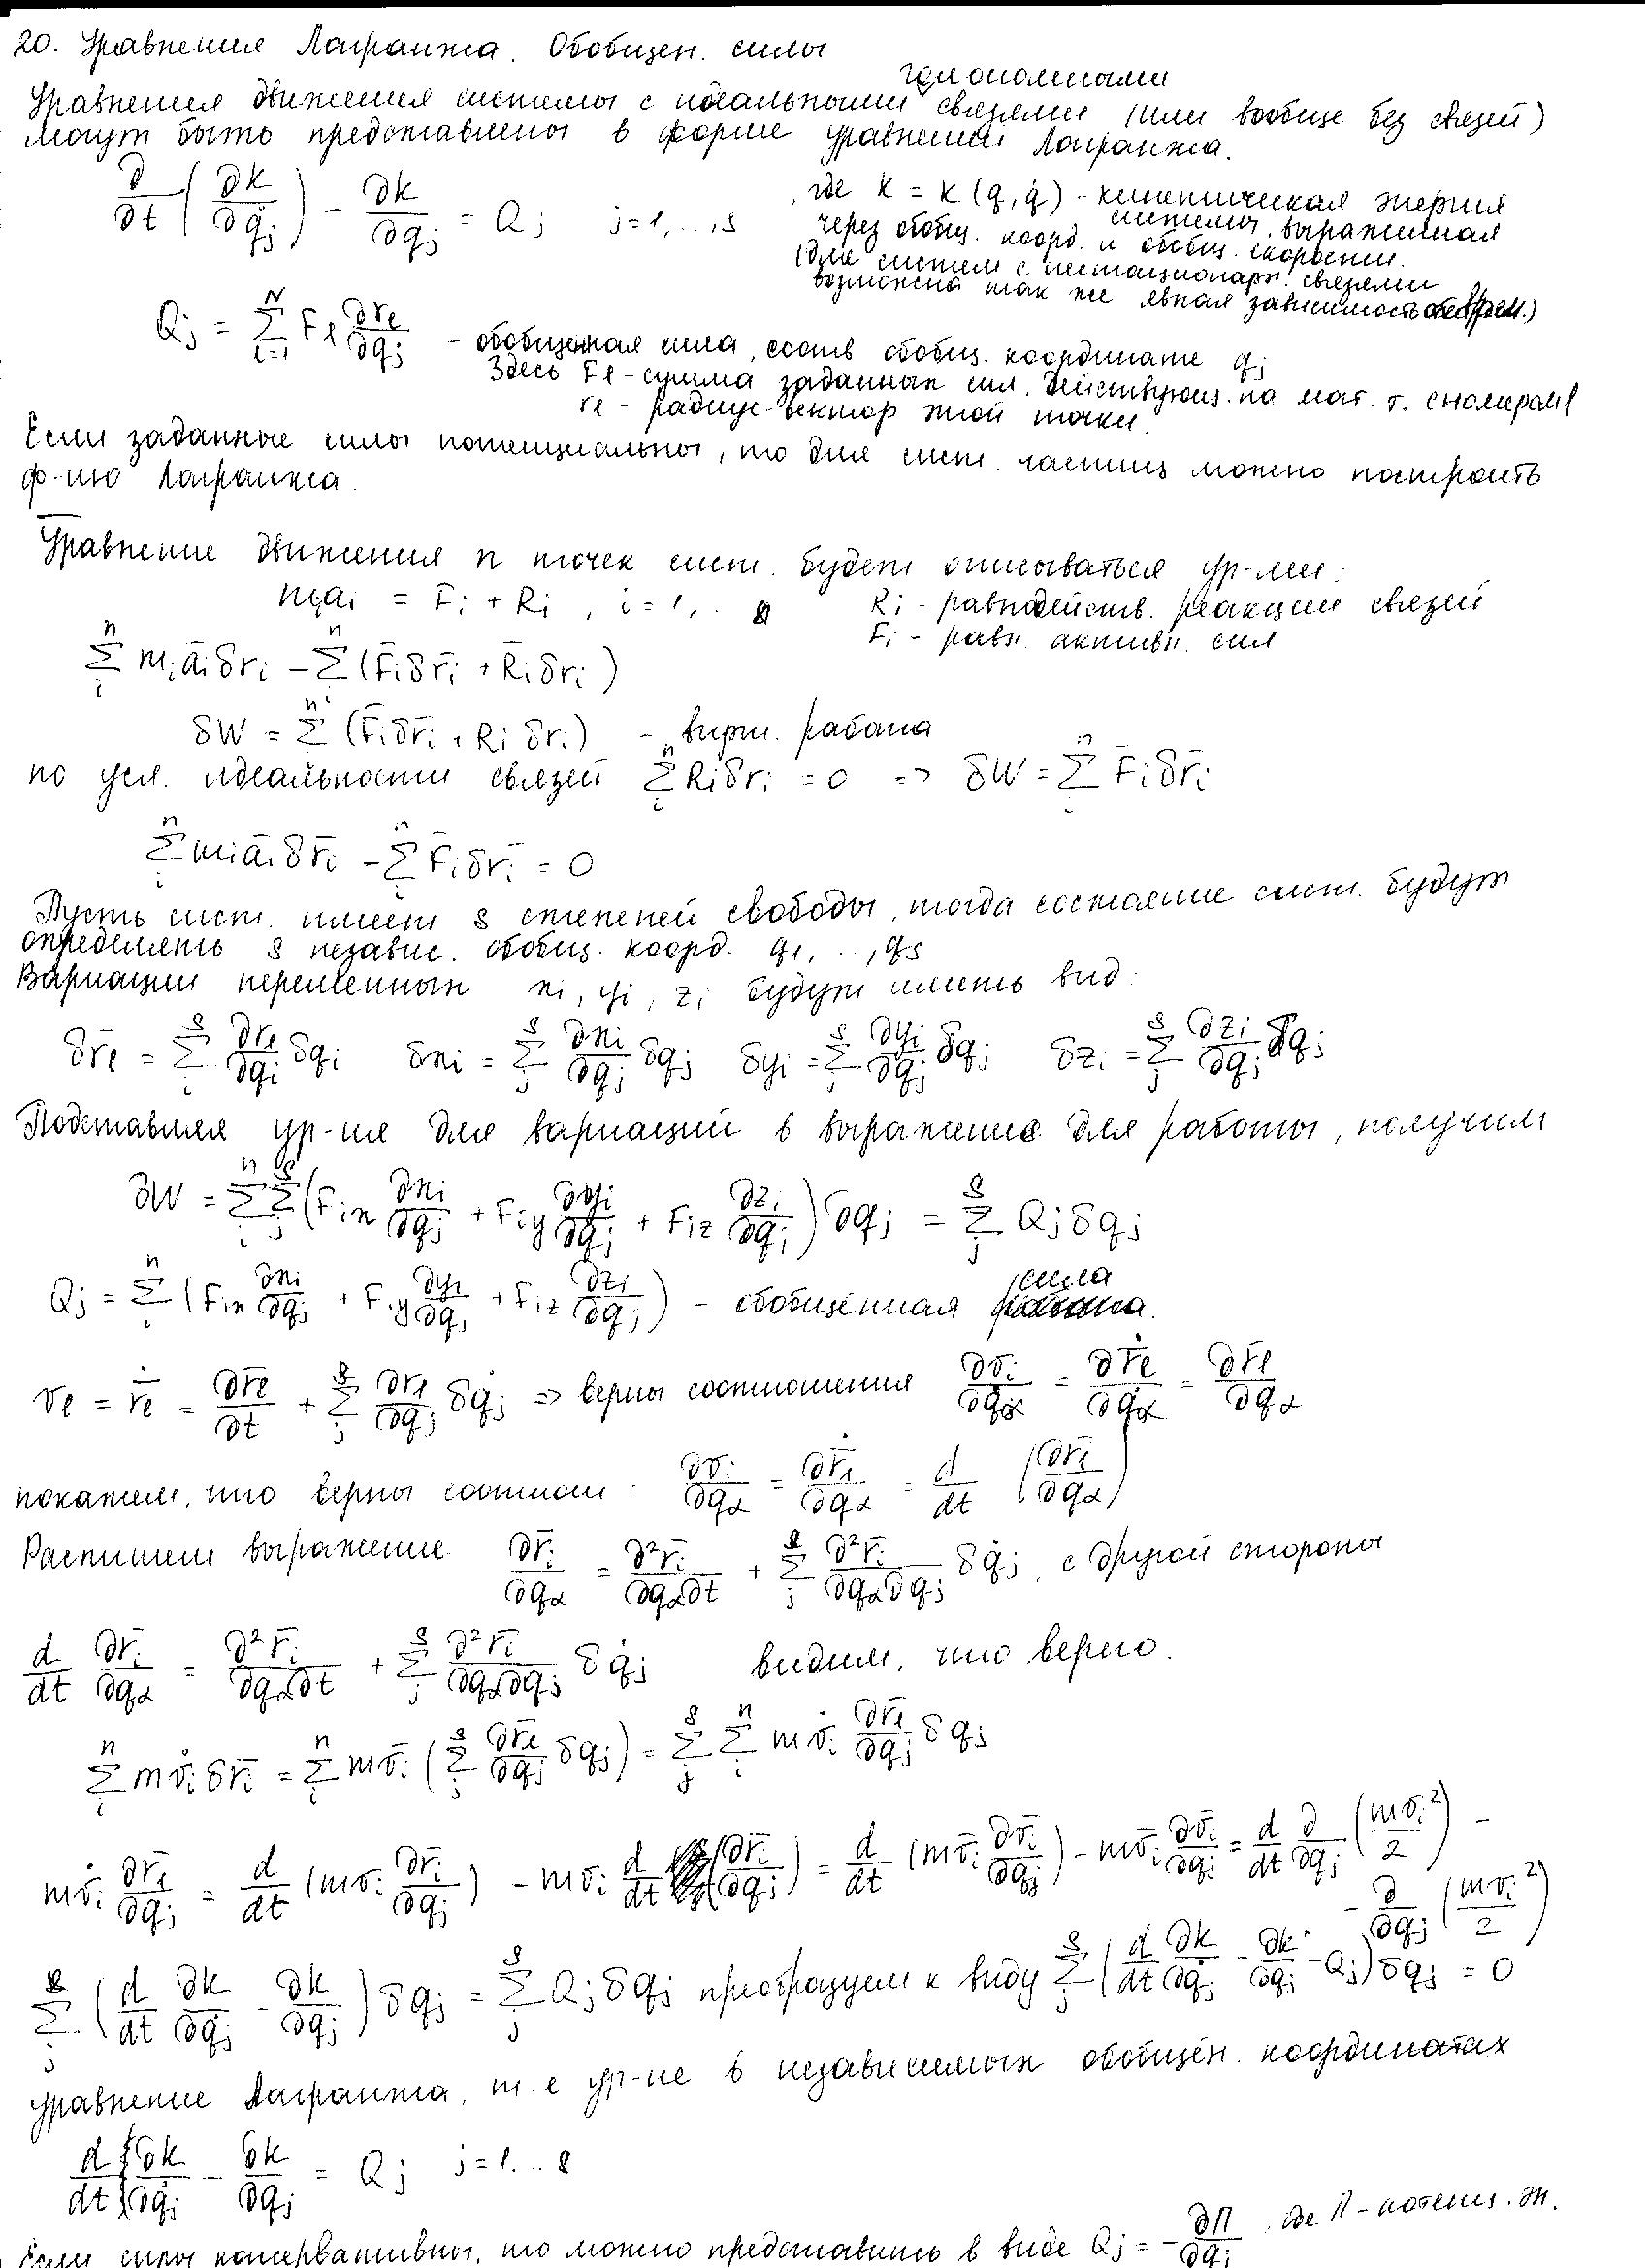 20. Уравнения Лагранжа. Обобщен. силы
голономными
Уравнения движения системы с идеальными связями (или вообще без связей)
могут быть представлены в форме уравнений Лагранжа.
∂/∂t (∂k/∂q̇j) - ∂k/∂qj = Qj j=1,..,s
, где k = k(q, q̇) - кинетическая энергия
системы, выраженная
через обобщ. коорд. и обобщ. скорости.
(для систем с нестационарн. связями
возможена так же явная зависимость от врем.)
Qj = Σ_{i=1}^{N} Fl ∂rl/∂qj - обобщенная сила, соотв обобщ. координате qj
Здесь Fl - сумма заданных сил, действующ. на мат. т. с номером l
rl - радиус-вектор этой точки.
Если заданные силы потенциальны, то для сист. частиц можно построить
ф-ию Лагранжа.
Уравнение движения n точек сист. будет описываться ур-ми:
miai = Fi + Ri, i=1,.. Ri - равнодейств. реакции связей
Fi - равн. активн. сил
Σ_i^n mi āi δri - Σ_i^n (F̄i δr̄i + R̄i δri)
δW = Σ_i^n (F̄i δr̄i + Ri δri) - вирт. работа
по усл. идеальности связей Σ_i^n Ri δri = 0 => δW = Σ_i^n F̄i δr̄i
Σ_i^n mi āi δr̄i - Σ_i^n F̄i δr̄i = 0
Пусть сист. имеет s степеней свободы, тогда состояние сист. будут
определять s независ. обобщ. коорд. q1, .., qs
Вариации переменных xi, yi, zi будут иметь вид:
δr̄l = Σ_i^s ∂rl/∂qi δqi δxi = Σ_j^s ∂xi/∂qj δqj δyi = Σ_j^s ∂yi/∂qj δqj δzi = Σ_j^s ∂zi/∂qj δqj
Подставляя ур-ие для вариаций в выражение для работы, получим
∂W = Σ_i^n Σ_j^s (Fix ∂xi/∂qj + Fiy ∂yi/∂qj + Fiz ∂zi/∂qj) ∂qj = Σ_j^s Qj δqj
Qj = Σ_i^n (Fix ∂xi/∂qj + Fiy ∂yi/∂qj + Fiz ∂zi/∂qj) - обобщённая сила
vl = ṙl = ∂r̄l/∂t + Σ_j^s ∂rl/∂qj δq̇j => верны соотношения ∂v̄i/∂q̇α = ∂ṙl/∂q̇α = ∂r̄l/∂qα
покажем, что верны соотнош: ∂v̄i/∂qα = ∂ṙi/∂qα = d/dt (∂r̄i/∂qα)
Распишем выражение ∂ṙi/∂qα = ∂²r̄i/∂qα∂t + Σ_j^s ∂²r̄i/∂qα∂qj δq̇j, с другой стороны
d/dt ∂r̄i/∂qα = ∂²r̄i/∂qα∂t + Σ_j^s ∂²r̄i/∂qα∂qj δq̇j видим, что верно.
Σ_i^n mv̇i δr̄i = Σ_i^n mv̄i (Σ_j^s ∂r̄l/∂qj δqj) = Σ_j^s Σ_i^n mv̇i ∂r̄i/∂qj δqj
mv̇i ∂r̄i/∂qj = d/dt (mvi ∂r̄i/∂qj) - mvi d/dt (∂r̄i/∂qj) = d/dt (mv̄i ∂v̄i/∂q̇j) - mv̄i ∂v̄i/∂qj = d/dt ∂/∂q̇j (mvi²/2) -
- ∂/∂qj (mvi²/2)
Σ_j^s (d/dt ∂k/∂q̇j - ∂k/∂qj) δqj = Σ_j^s Qj δqj преобразуем к виду Σ_j^s (d/dt ∂k/∂q̇j - ∂k/∂qj - Qj) δqj = 0
уравнение Лагранжа, т.е ур-ие в независимых обобщён. координатах
d/dt (∂k/∂q̇j - ∂k/∂qj = Qj j=1...s
Если силы консервативны, то можно представить в виде Qj = - ∂П/∂qj, где П - потенц. эн.